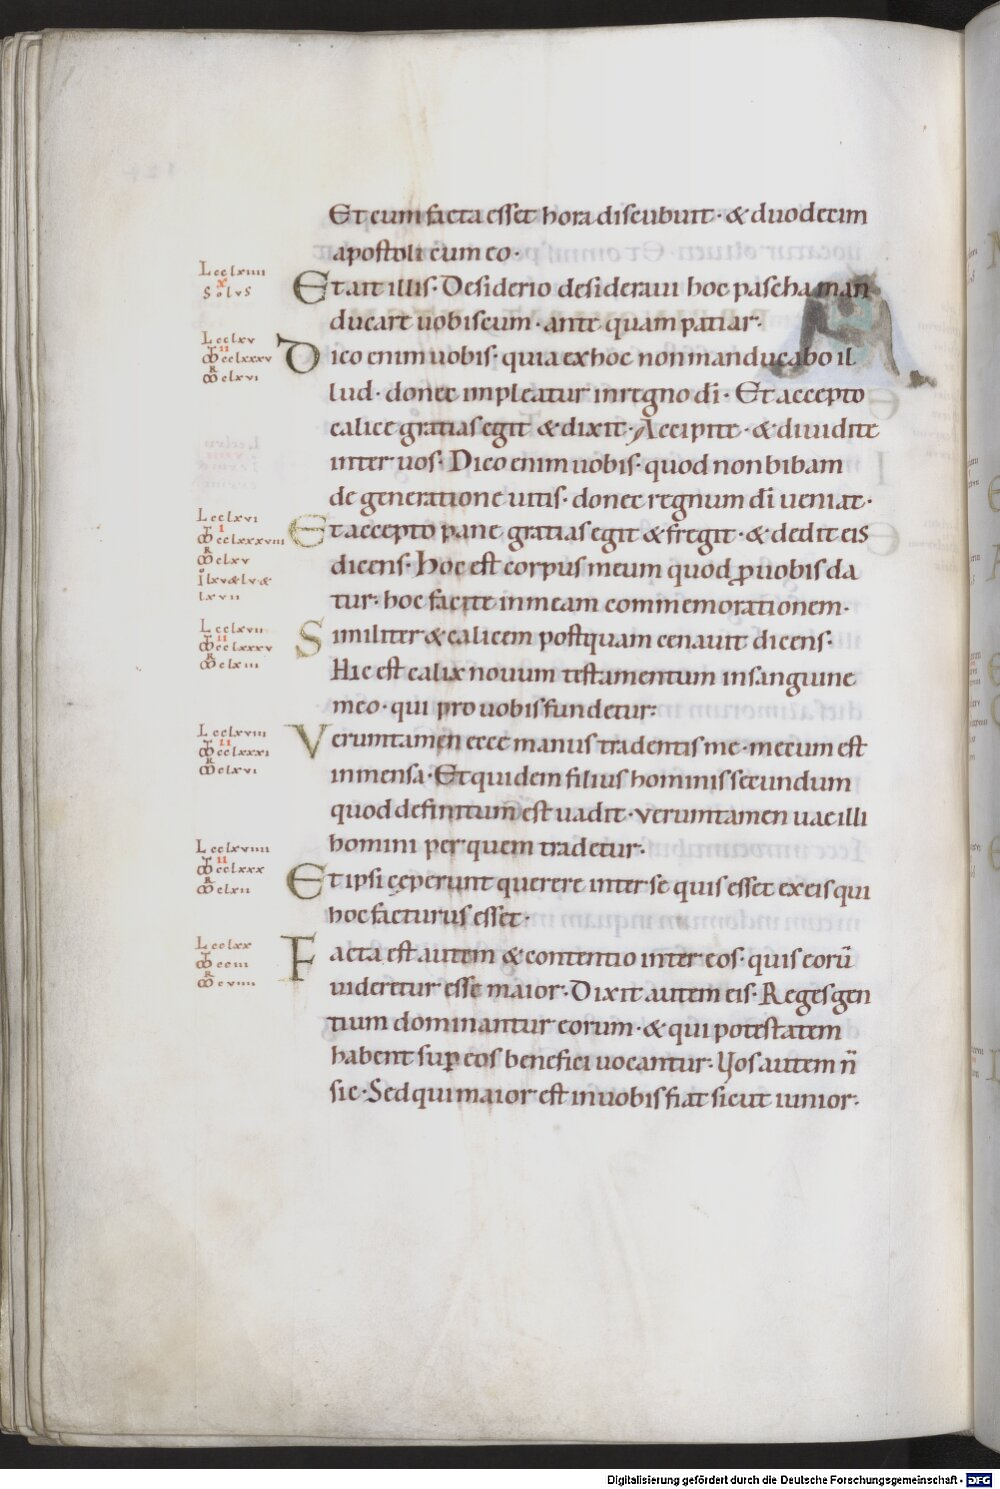 Et cum facta esset hora discubuit· & duodecim
apostoli cum eo·
L cclxiiii
x
Solus
Et ait illis· Desiderio desideraui hoc pascha man
ducare uobiscum· ante quam patiar·
L cclxv
II
cclxxxv
clxvi
Dico enim uobis· quia ex hoc non manducabo il
lud· donec impleatur in regno di· Et accepto
calice gratias egit & dixit· Accipite· & diuidite
inter uos· Dico enim uobis· quod non bibam
de generatione uitis· donec regnum di ueniat·
L cclxvi
I
cclxxxviii
clxv
lxv&lv&
lxvii
Et accepto pane gratias egit & fregit· & dedit eis
dicens· Hoc est corpus meum quod p uobis da
tur· hoc facite in meam commemorationem·
L cclxvii
II
cclxxxv
clxiii
Similiter & calicem postquam cenauit dicens·
Hic est calix nouum testamentum in sanguine
meo· qui pro uobis fundetur·
L cclxviii
II
cclxxxi
clxvi
Veruntamen ecce manus tradentis me· mecum est
in mensa· Et quidem filius hominis secundum
quod definitum est uadit· ueruntamen uae illi
homini per quem tradetur·
L cclxviiii
II
cclxxx
clxii
Et ipsi cęperunt querere inter se quis esset ex eis qui
hoc facturus esset·
L cclxx
cciii
cviiii
Facta est autem & contentio inter eos· quis eorū
uideretur esse maior· Dixit autem eis· Reges gen
tium dominantur eorum· & qui potestatem
habent sup eos benefici uocantur· Vos autem n̄
sic· Sed qui maior est in uobis fiat sicut iunior·
Digitalisierung gefördert durch die Deutsche Forschungsgemeinschaft - DFG